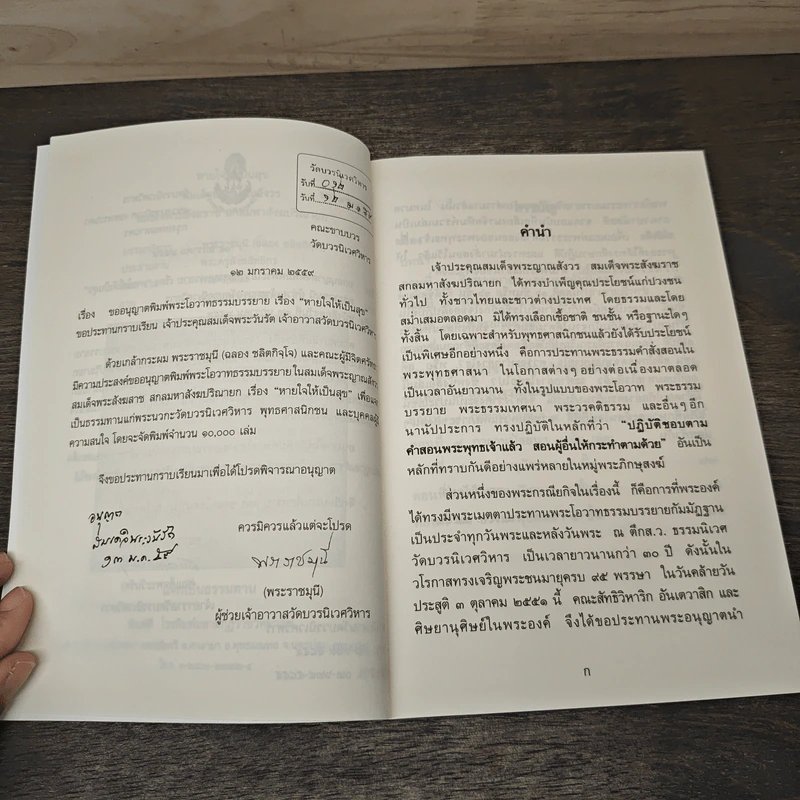 วัดบวรนิเวศวิหาร
รับที่
วันที่
คณะขาบบวร
วัดบวรนิเวศวิหาร
๑๒ มกราคม ๒๕๕๙
เรื่อง ขออนุญาตพิมพ์พระโอวาทธรรมบรรยาย เรื่อง "หายใจให้เป็นสุข"
ขอประทานกราบเรียน เจ้าประคุณสมเด็จพระวันรัต เจ้าอาวาสวัดบวรนิเวศวิหาร
ด้วยเกล้ากระผม พระราชมุนี (ฉลอง ชลิตกิจฺโจ) และคณะผู้มีจิตศรัทธา
มีความประสงค์ขออนุญาตพิมพ์พระโอวาทธรรมบรรยาย ในสมเด็จพระญาณสังวร
สมเด็จพระสังฆราช สกลมหาสังฆปริณายก เรื่อง "หายใจให้เป็นสุข"
เป็นธรรมทานแก่พระนวกะวัดบวรนิเวศวิหาร พุทธศาสนิกชน และบุคคลผู้
ความสนใจ โดยจะจัดพิมพ์จำนวน ๑๐,๐๐๐ เล่ม
จึงขอประทานกราบเรียนมาเพื่อได้โปรดพิจารณาอนุญาต
อนุญาต
สมเด็จพระวันรัต
๑๓ ม.ค. ๕๙
ควรมิควรแล้วแต่จะโปรด
พระราชมุนี
(พระราชมุนี)
ผู้ช่วยเจ้าอาวาสวัดบวรนิเวศวิหาร
คำนำ
เจ้าประคุณสมเด็จพระญาณสังวร สมเด็จพระสังฆราช
สกลมหาสังฆปริณายก ได้ทรงบำเพ็ญคุณประโยชน์แก่ปวงชน
ทั่วไป ทั้งชาวไทยและชาวต่างประเทศ โดยธรรมและโดย
สม่ำเสมอตลอดมา มิได้ทรงเลือกเชื้อชาติ ชนชั้น หรือฐานะใดๆ
ทั้งสิ้น โดยเฉพาะสำหรับพุทธศาสนิกชนแล้วยังได้รับประโยชน์
เป็นพิเศษอีกอย่างหนึ่ง คือการประทานพระธรรมคำสั่งสอนใน
พระพุทธศาสนา ในโอกาสต่างๆ อย่างต่อเนื่องมาตลอด
เป็นเวลาอันยาวนาน ทั้งในรูปแบบของพระโอวาท พระธรรม
บรรยาย พระธรรมเทศนา พระวรคติธรรม และอื่นๆ อีก
นานัปประการ ทรงปฏิบัติในหลักที่ว่า "ปฏิบัติชอบตาม
คำสอนพระพุทธเจ้าแล้ว สอนผู้อื่นให้กระทำตามด้วย" อันเป็น
หลักที่ทราบกันดีอย่างแพร่หลายในหมู่พระภิกษุสงฆ์
ส่วนหนึ่งของพระกรณียกิจในเรื่องนี้ ก็คือการที่พระองค์
ได้ทรงมีพระเมตตาประทานพระโอวาทธรรมบรรยายกัมมัฏฐาน
เป็นประจำทุกวันพระและหลังวันพระ ณ ตึกส.ว. ธรรมนิเวศ
วัดบวรนิเวศวิหาร เป็นเวลายาวนานกว่า ๓๐ ปี ดังนั้นใน
วโรกาสทรงเจริญพระชนมายุครบ ๙๕ พรรษา ในวันคล้ายวัน
ประสูติ ๓ ตุลาคม ๒๕๕๑ นี้ คณะสัทธิวิหาริก อันเตวาสิก และ
ศิษยานุศิษย์ในพระองค์ จึงได้ขอประทานพระอนุญาตนำ
ก